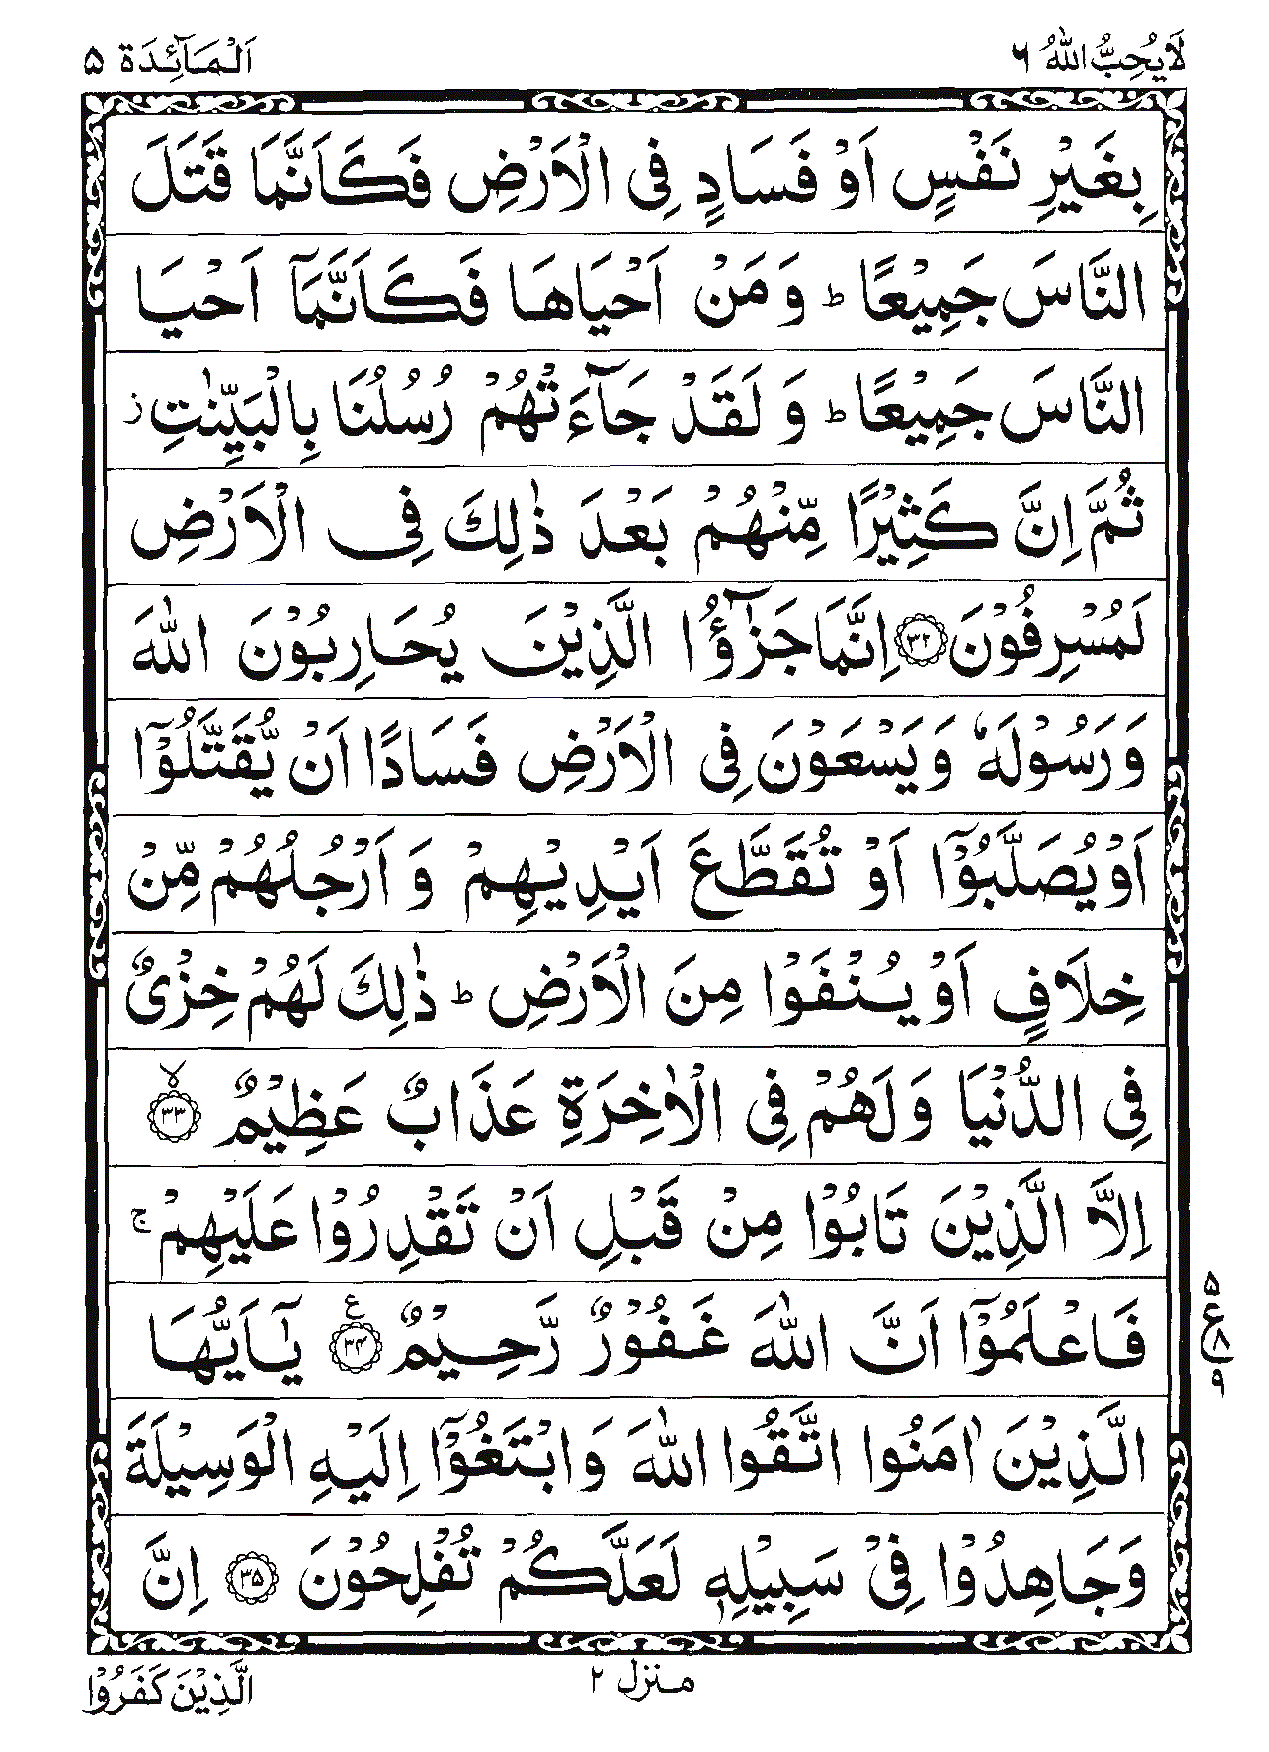 لَا يُحِبُّ اللهُ ۶
اَلْمَآئِدَة ۵
بِغَيْرِ نَفْسٍ اَوْ فَسَادٍ فِى الْاَرْضِ فَكَاَنَّمَا قَتَلَ
النَّاسَ جَمِيْعًا ؕ وَمَنْ اَحْيَاهَا فَكَاَنَّمَاۤ اَحْيَا
النَّاسَ جَمِيْعًا ؕ وَ لَقَدْ جَآءَتْهُمْ رُسُلُنَا بِالْبَيِّنٰتِ ز
ثُمَّ اِنَّ كَثِيْرًا مِّنْهُمْ بَعْدَ ذٰلِكَ فِى الْاَرْضِ
لَمُسْرِفُوْنَ ﴿۳۲﴾ اِنَّمَا جَزٰٓؤُا الَّذِيْنَ يُحَارِبُوْنَ اللّٰهَ
وَرَسُوْلَهٗ وَيَسْعَوْنَ فِى الْاَرْضِ فَسَادًا اَنْ يُّقَتَّلُوْۤا
اَوْ يُصَلَّبُوْۤا اَوْ تُقَطَّعَ اَيْدِيْهِمْ وَ اَرْجُلُهُمْ مِّنْ
خِلَافٍ اَوْ يُنْفَوْا مِنَ الْاَرْضِ ؕ ذٰلِكَ لَهُمْ خِزْىٌ
فِى الدُّنْيَا وَلَهُمْ فِى الْاٰخِرَةِ عَذَابٌ عَظِيْمٌ ﴿۳۳﴾ ۙ
اِلَّا الَّذِيْنَ تَابُوْا مِنْ قَبْلِ اَنْ تَقْدِرُوْا عَلَيْهِمْ ۚ
فَاعْلَمُوْۤا اَنَّ اللّٰهَ غَفُوْرٌ رَّحِيْمٌ ﴿۳۴﴾ ع يٰۤاَيُّهَا
۵
ع ۸
۹
الَّذِيْنَ اٰمَنُوا اتَّقُوا اللّٰهَ وَابْتَغُوْۤا اِلَيْهِ الْوَسِيْلَةَ
وَجَاهِدُوْا فِىْ سَبِيْلِهٖ لَعَلَّكُمْ تُفْلِحُوْنَ ﴿۳۵﴾ اِنَّ
منزل ۲
الَّذِيْنَ كَفَرُوْا